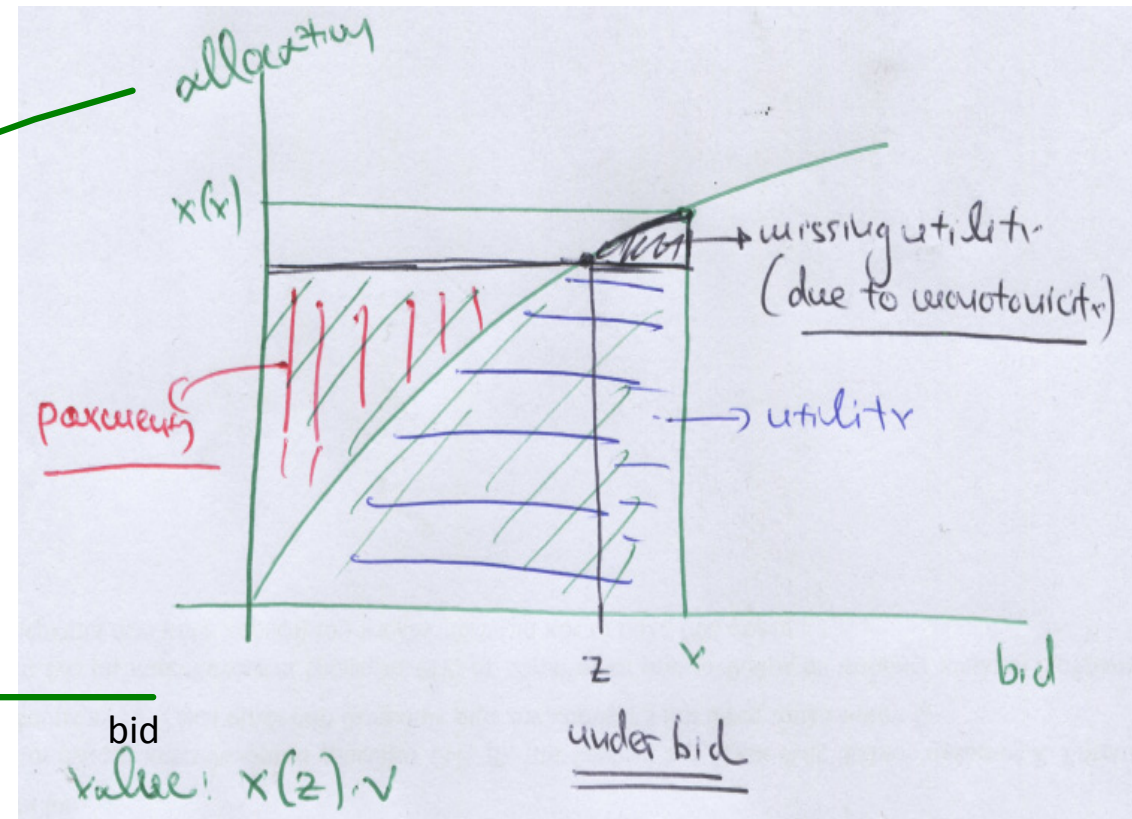 allocation
x(v)
missing utility
(due to monotonicity)
payment
utility
z
v
bid
bid
under bid
value: x(z).v